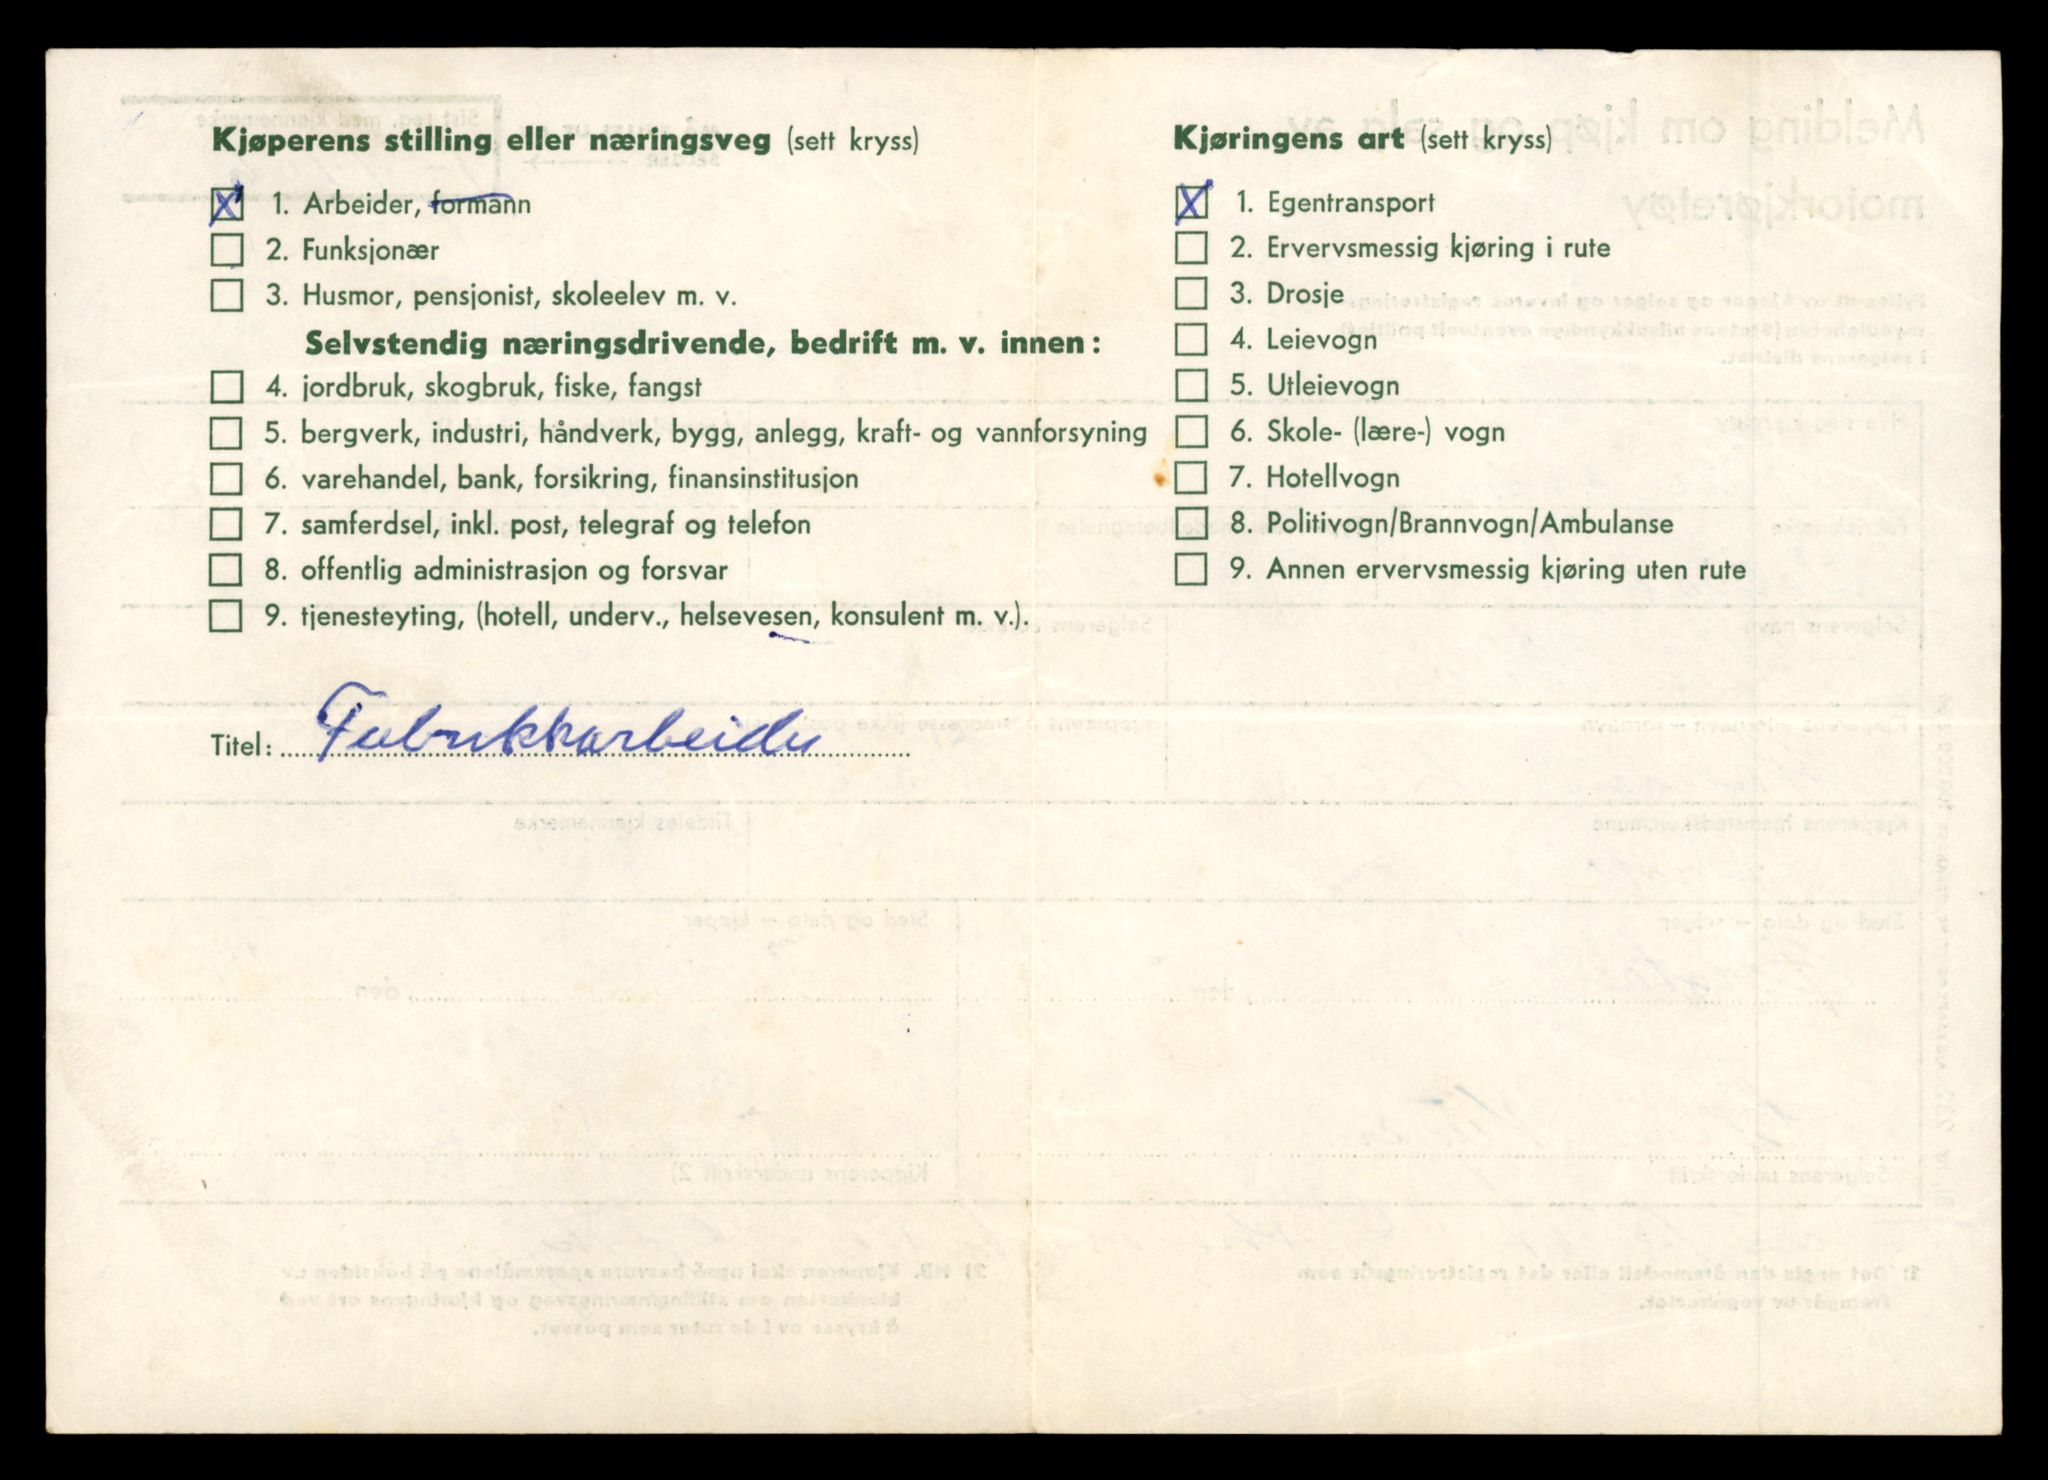 Kjøperens stilling eller næringsveg (sett kryss)
X 1. Arbeider, formann
2. Funksjonær
3. Husmor, pensjonist, skoleelev m. v.
Selvstendig næringsdrivende, bedrift m. v. innen:
4. jordbruk, skogbruk, fiske, fangst
5. bergverk, industri, håndverk, bygg, anlegg, kraft- og vannforsyning
6. varehandel, bank, forsikring, finansinstitusjon
7. samferdsel, inkl. post, telegraf og telefon
8. offentlig administrasjon og forsvar
9. tjenesteyting, (hotell, underv., helsevesen, konsulent m. v.).
Titel: Fabrikkarbeider
Kjøringens art (sett kryss)
X 1. Egentransport
2. Ervervsmessig kjøring i rute
3. Drosje
4. Leievogn
5. Utleievogn
6. Skole- (lære-) vogn
7. Hotellvogn
8. Politivogn/Brannvogn/Ambulanse
9. Annen ervervsmessig kjøring uten rute